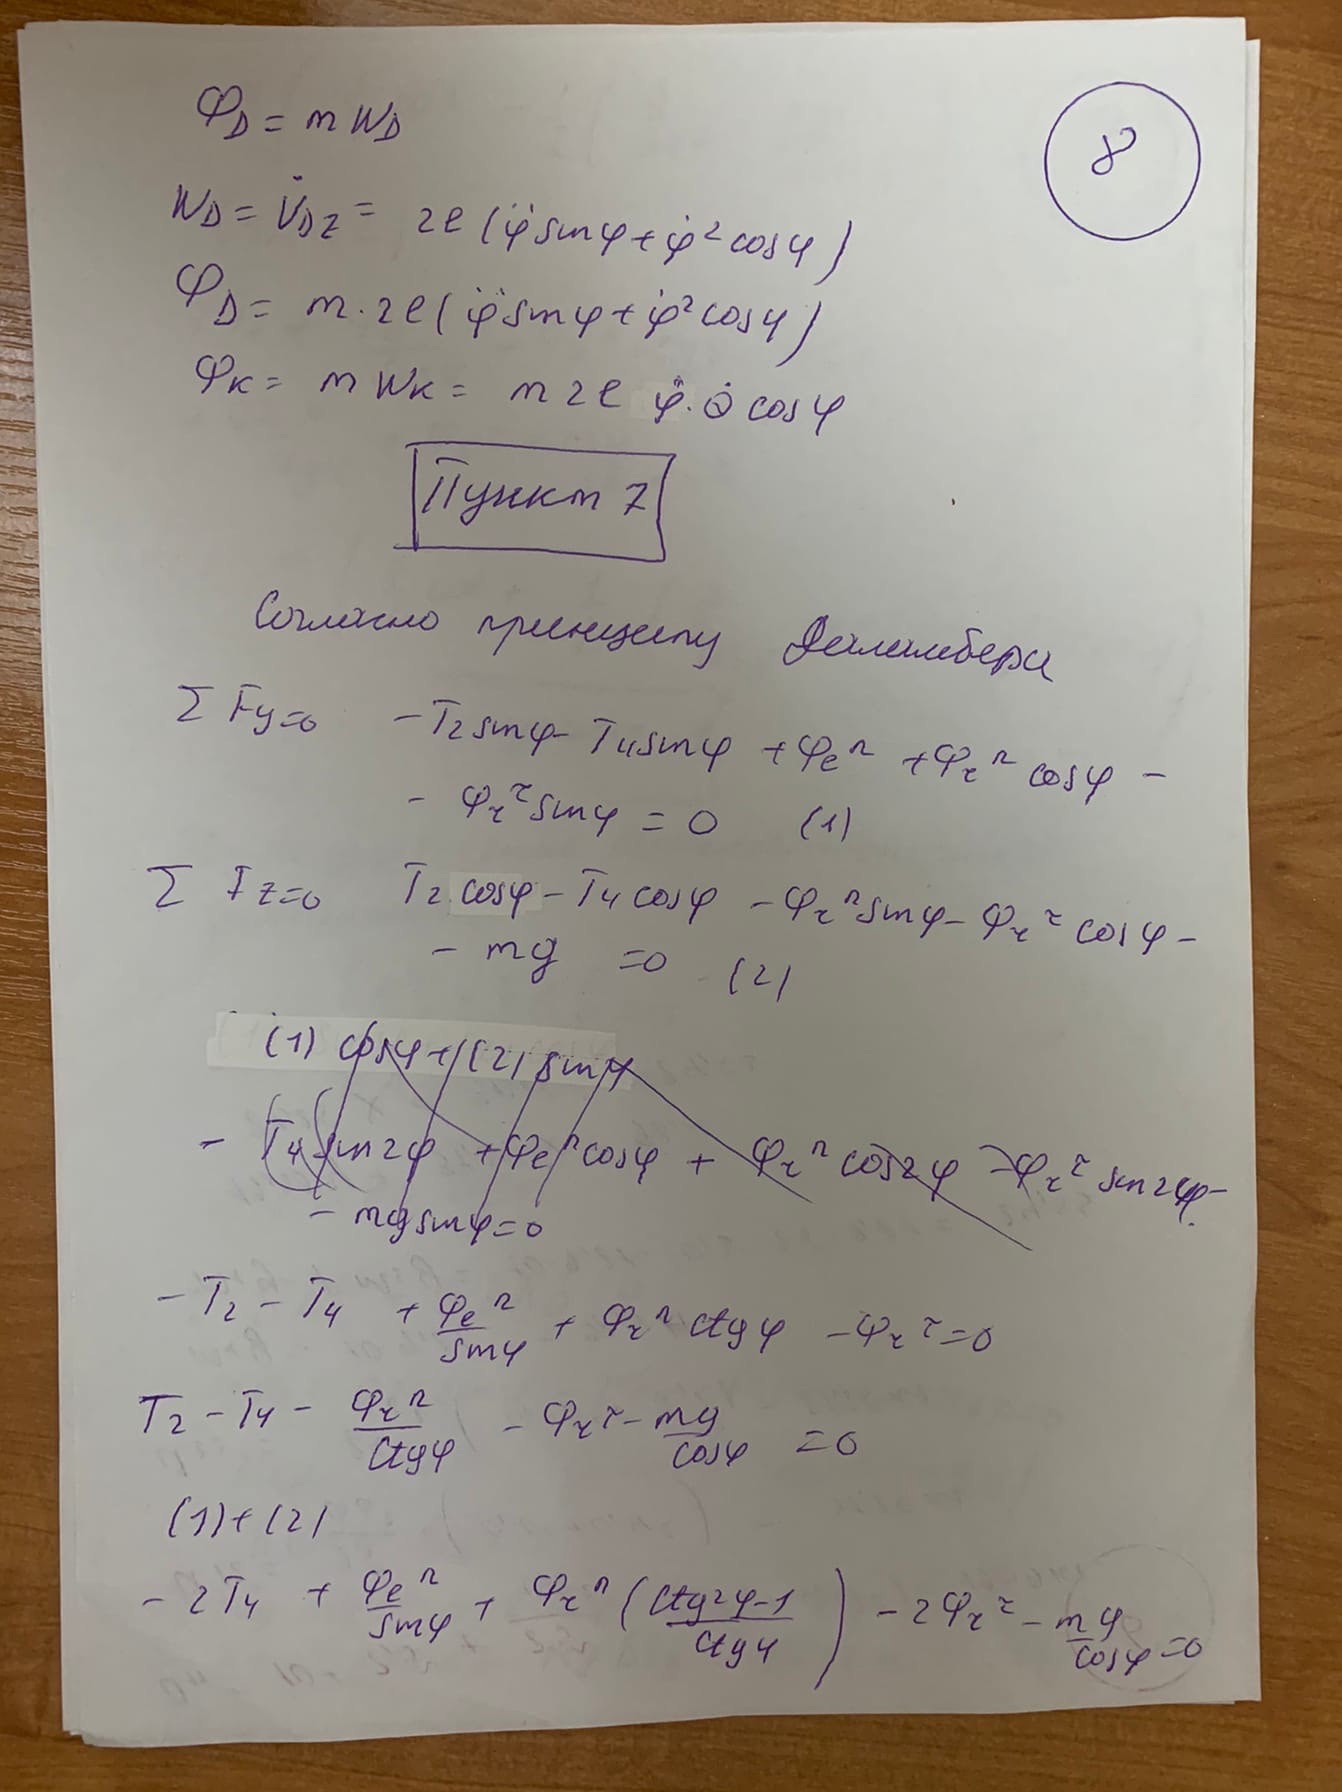 8
Φ_D = m W_D
W_D = V̇_DZ = 2ℓ(φ̈ sinφ + φ̇² cosφ)
Φ_D = m·2ℓ(φ̈ sinφ + φ̇² cosφ)
Φ_K = m W_K = m 2ℓ φ̇·θ̇ cosφ
Пункт 7
Согласно принципу Даламбера
Σ Fy=0 −T₂ sinφ − T₄ sinφ + Φₑⁿ + Φᵣⁿ cosφ −
− Φᵣ^τ sinφ = 0 (1)
Σ Fz=0 T₂ cosφ − T₄ cosφ − Φᵣⁿ sinφ − Φᵣ^τ cosφ −
− mg =0 (2)
(1) cosφ + (2) sinφ
− T₄ sin2φ + Φₑⁿ cosφ + Φᵣⁿ cos2φ − Φᵣ^τ sin2φ −
− mg sinφ = 0
− T₂ − T₄ + Φₑⁿ/sinφ + Φᵣⁿ ctgφ − Φᵣ^τ = 0
T₂ − T₄ − Φᵣⁿ/ctgφ − Φᵣ^τ − mg/cosφ = 0
(1)+(2)
− 2T₄ + Φₑⁿ/sinφ + Φᵣⁿ (ctg²φ−1/ctgφ) − 2Φᵣ^τ − mg/cosφ = 0